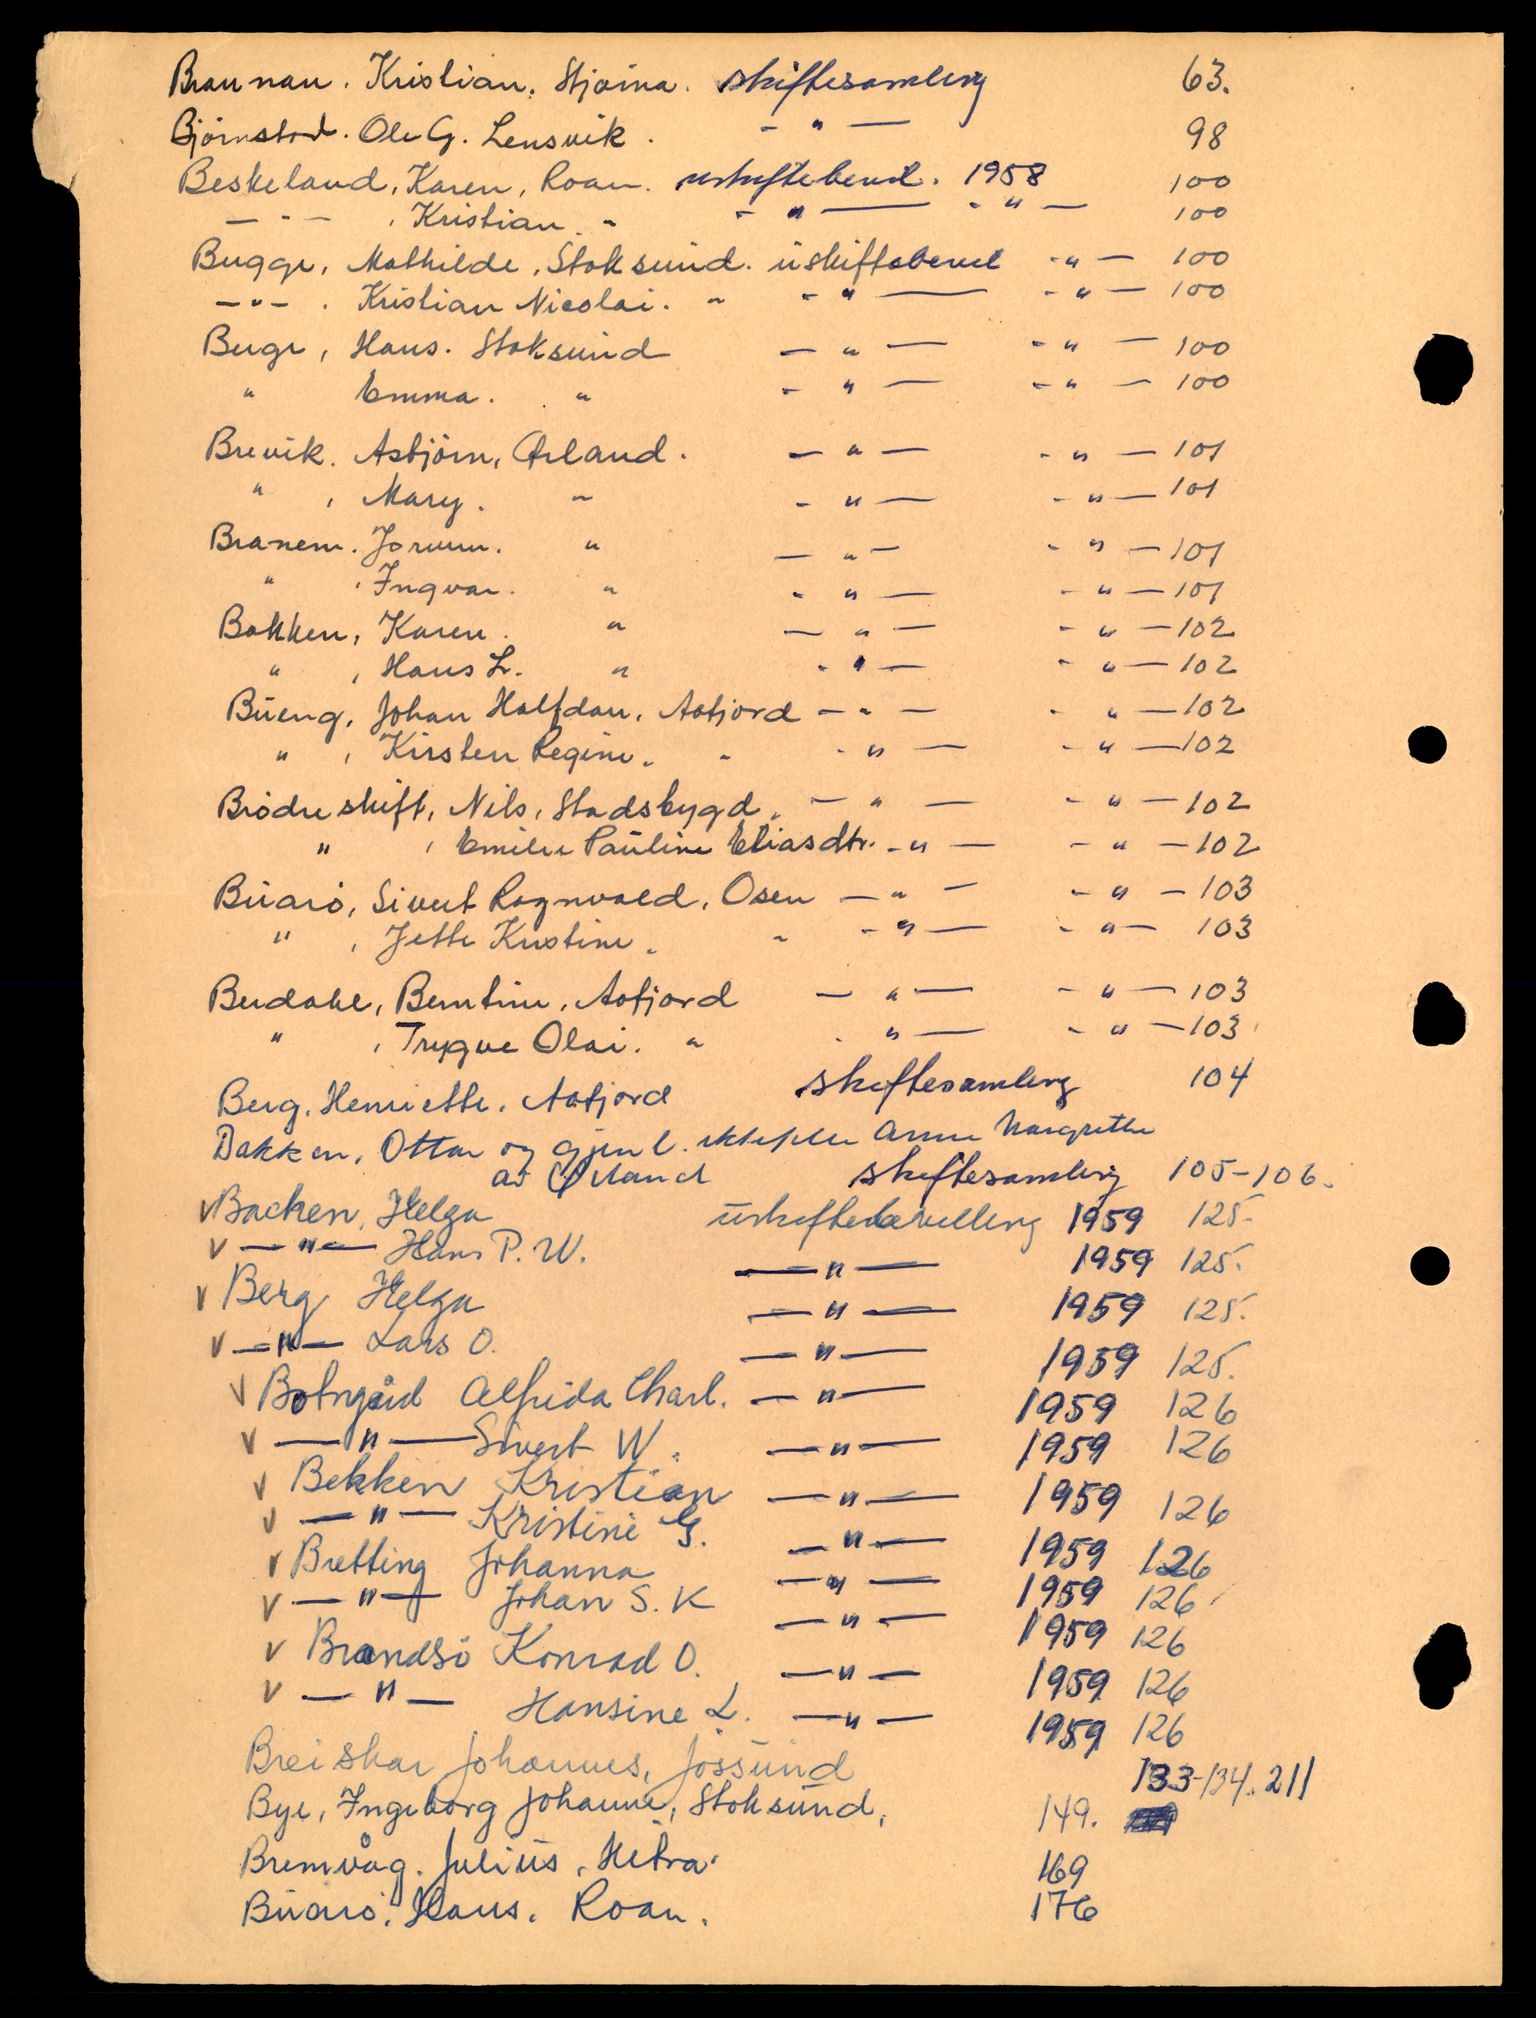 Braunau. Kristian. Stjørna. skiftesamling 63.
Bjørnstad. Ole G. Lensvik. - " — 98
Beskeland, Karen, Roan. uskiftebevil. 1958 100
— " — , Kristian. " - " — - " — 100
Bugge, Mathilde, Stoksund. uskiftebevil - " — 100
— " — . Kristian Nicolai. " - " — - " — 100
Berge, Hans. Stoksund — " — - " — 100
" Emma. " - " — - " — 100
Brevik. Asbjørn, Ørland. — " — - " — 101
" , Mary. " - " — - " — 101
Branem. Jorunn. " — " — - " — 101
" , Ingvar. " - " — - " — 101
Bakken, Karen. " — " — - " — 102
" , Hans L. " - " — - " — 102
Bueng, Johan Halfdan, Aafjord — " — - " — 102
" , Kirsten Regine. " - " — - " — 102
Brødreskift, Nils, Stadsbygd. — " — - " — 102
" , Emilie Pauline Eliasdtr. - " — - " — 102
Buarø, Sivert Ragnvald, Osen — " — - " — 103
" , Jette Kristine. " - " — - " — 103
Berdahl, Berntine, Aafjord — " — - " — 103
" , Trygve Olai. " - " — - " — 103
Berg, Henriette, Aafjord skiftesamling 104
Bakken, Ottar og gjenl. ektefelle Anne Margrethe
av Ørland skiftesamling 105-106.
v Backen, Helga uskiftebevilling 1959 125.
v — " — Hans P. W. — " — 1959 125.
v Berg Helga — " — 1959 125.
v — " — Lars O. — " — 1959 125.
v Botngård Alfrida Charl. — " — 1959 126
v — " — Sivert W. — " — 1959 126
v Bekken Kristian — " — 1959 126
v — " — Kristine G. — " — 1959 126
v Bretting Johanna — " — 1959 126
v — " — Johan S. K — " — 1959 126
v Brandsø Konrad O. — " — 1959 126
v — " — Hansine L. — " — 1959 126
Breiskar Johannes, Jøssund 133-134. 211
Bye, Ingeborg Johanne, Stoksund, 149.
Bremvåg. Julius, Hitra. 169
Buarø, Hans. Roan. 176